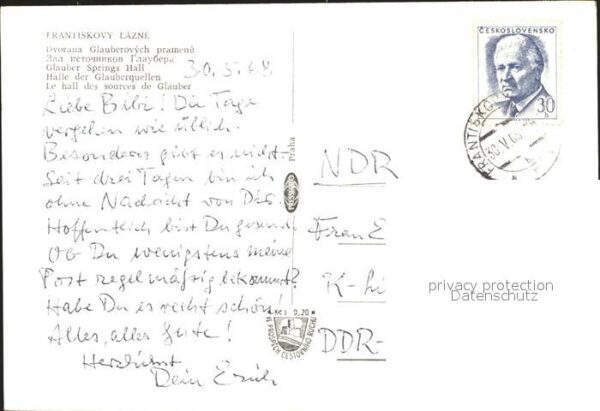 FRANTIŠKOVY LÁZNĚ
Dvorana Glauberových pramenů
Зал источников Глаубера
Glauber Springs Hall
Halle der Glauberquellen
Le hall des sources de Glauber
30.5.68
Liebe Bibi! Die Tage
vergehen wie üblich.
Besonderes gibt es nicht.
Seit drei Tagen bin ich
ohne Nachricht von Dir.
Hoffentlich bist Du gesund.
Ob Du wenigstens meine
Post regelmäßig bekommst?
Habe Du es recht schön!
Alles, alles Gute!
Herzlichst
Dein Erich
Praha
Kčs 0,20
VE PROSPĚCH CESTOVNÍHO RUCHU
ČESKOSLOVENSKO
30 h
30.V.68
NDR
Frau E
K-
DDR-
privacy protection
Datenschutz